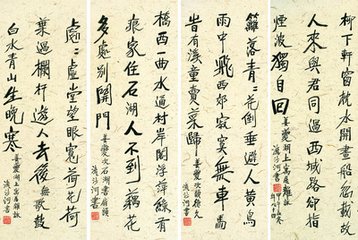 柳下軒窗枕水開畫船忽載故
人來與君同過西城路却指
煙波獨自回
姜夔湖上寓居雜詠
籬落青青花倒垂避人黃鳥
雨中飛西郊寂寞無車馬
時有溪童賣菜歸
橋西一曲水通村岸閣浮萍綠有
痕家住石湖人不到藕花
多處別開門
處處虛堂望眼寬荷花荷
葉過欄杆遊人去後無歌鼓
白水青山生晚寒